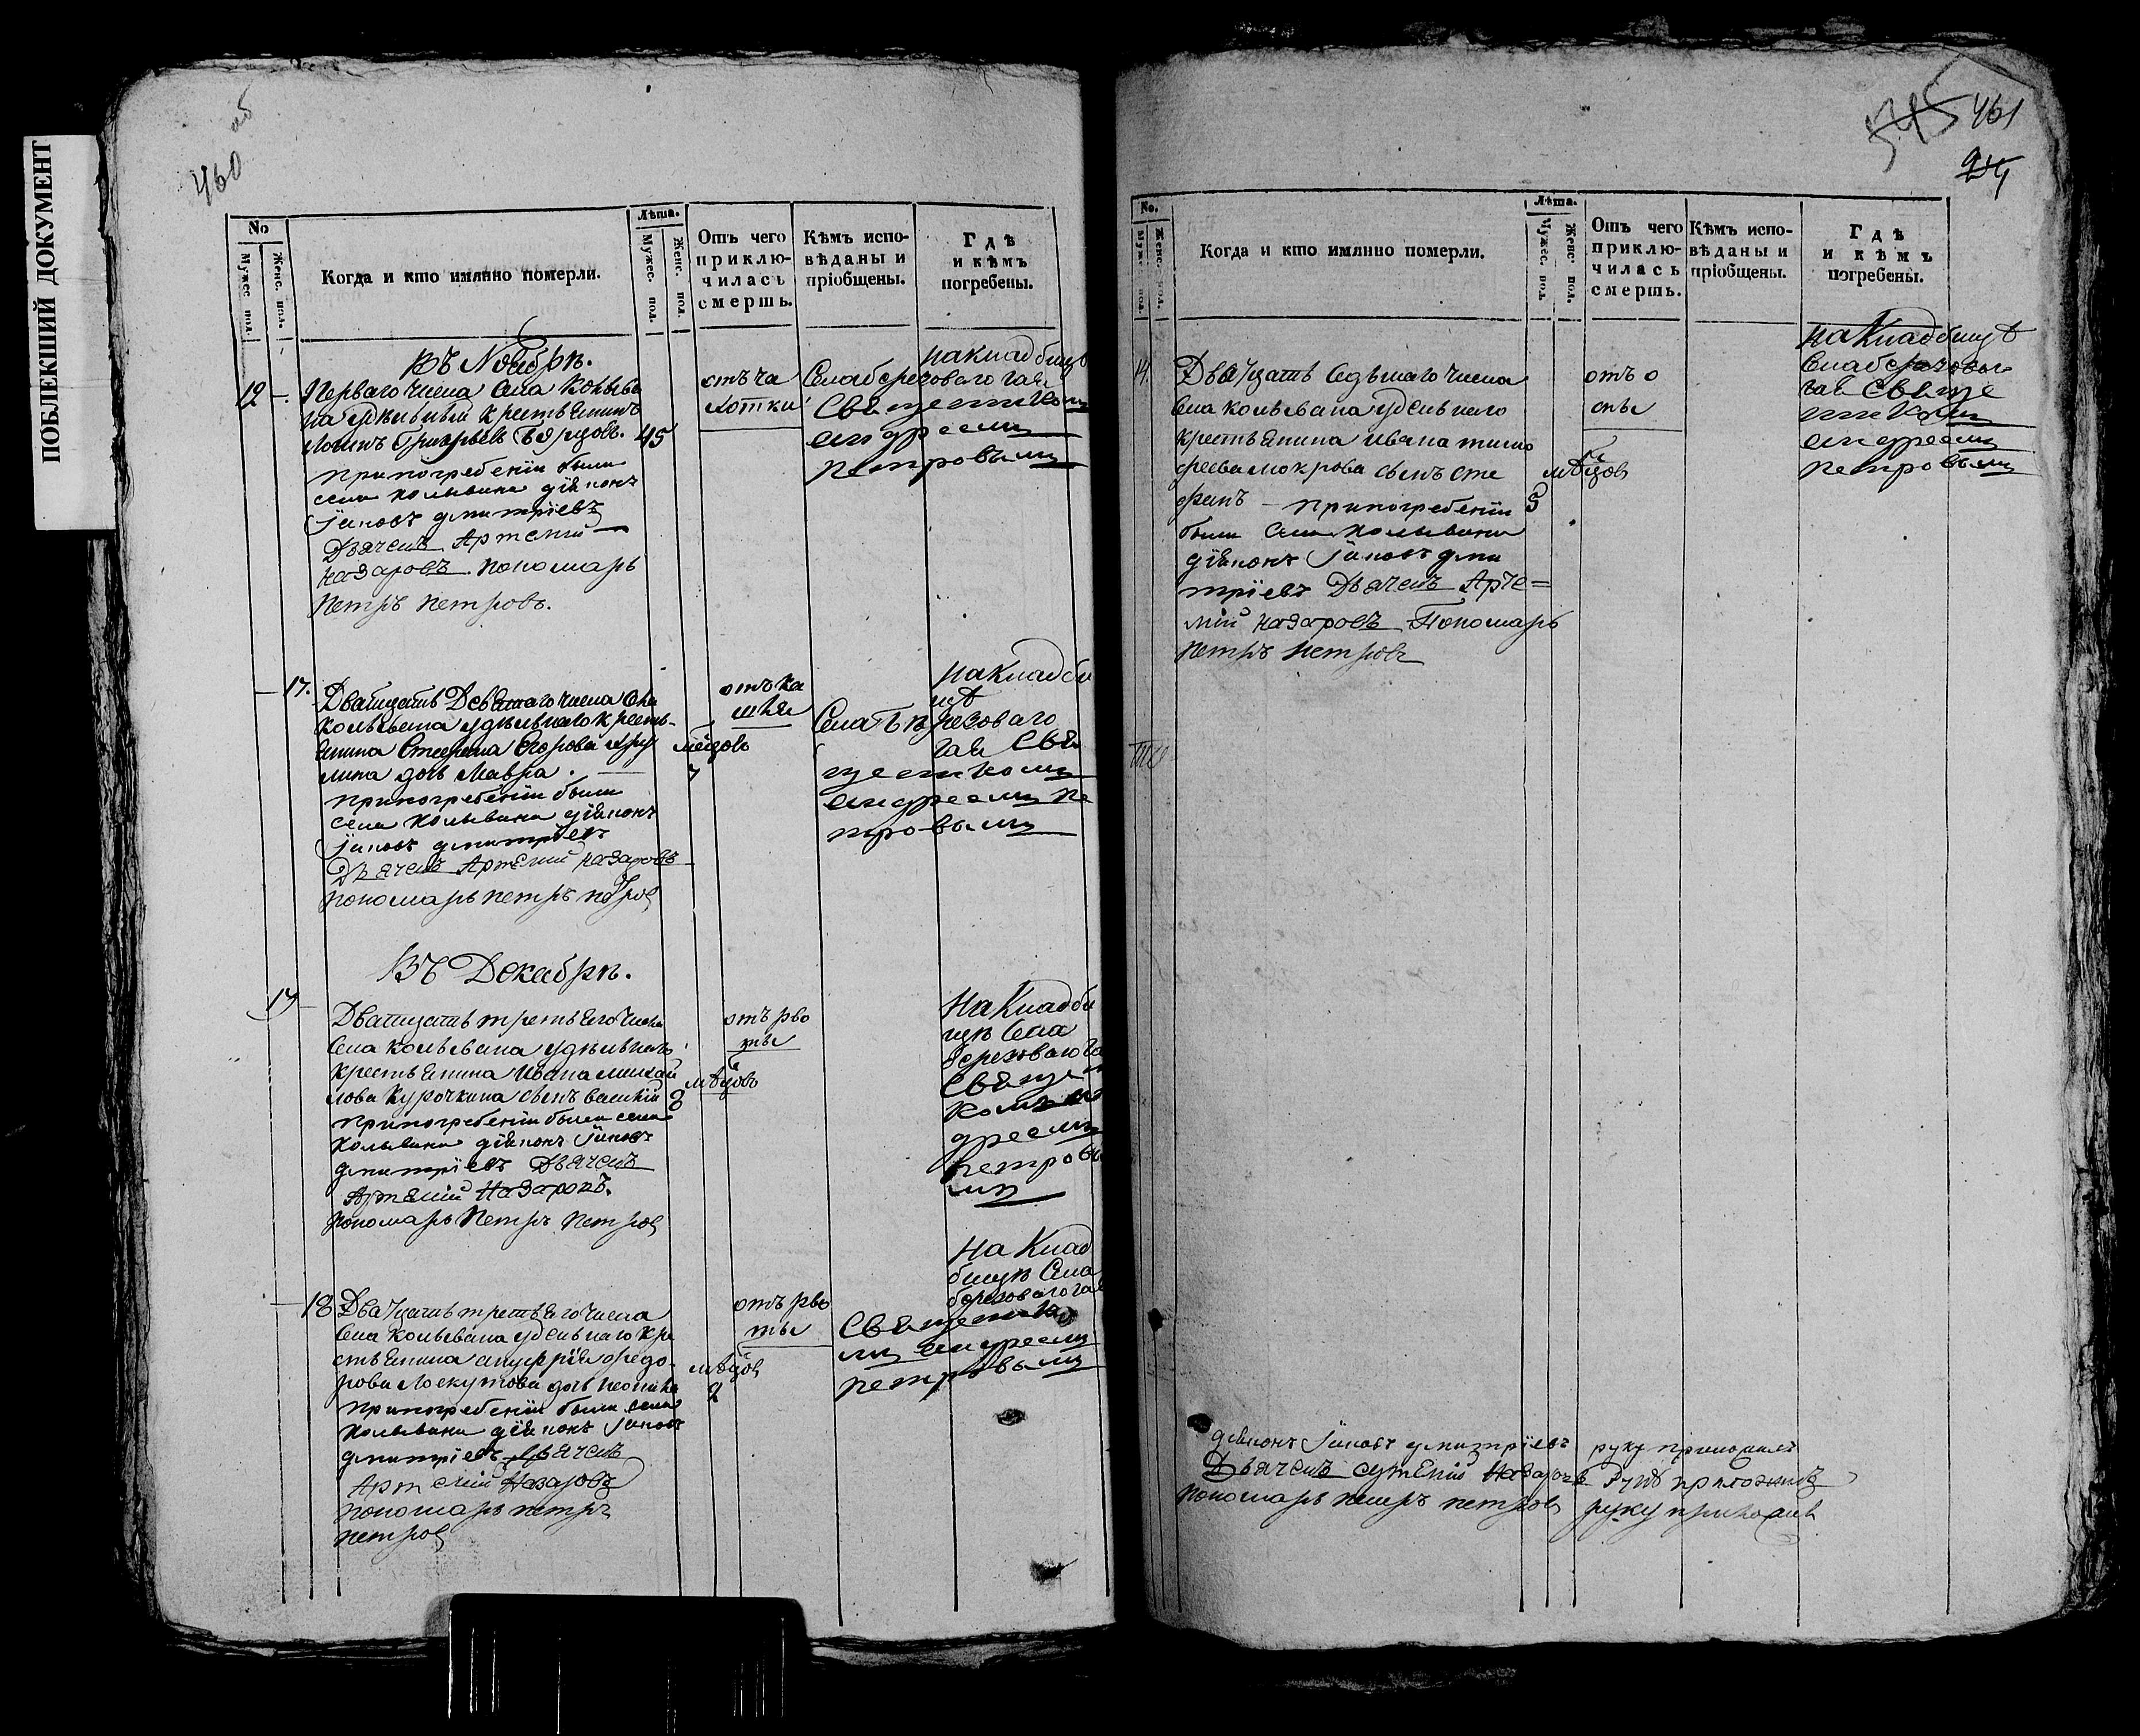 ПОБЛЕКШИЙ ДОКУМЕНТ
460
об
No
Мужес. пол.
Женс. пол.
Когда и кто имянно померли.
Лѣта.
Мужес. пол.
Женс. пол.
Отъ чего приклю-
чилась
смерть.
Кѣмъ испо-
вѣданы и
пріобщены.
Гдѣ
и кѣмъ
погребены.
Въ Ноябрѣ.
12 –
Перваго числа Села Колыва
на удѣльный крестьянинъ
Григорьев
45
При погребеніи были
села Колывана діаконъ
Іаковъ Дмитріевъ
Дьячекъ Артемій
Назаровъ. Пономарь
Петръ Петровъ.
отъ ча
хотки
на кладбищѣ
Села березоваго гая
Священником
андреемъ
петровымъ
– 17.
Дватцать Девятаго числа Села
Колывана удѣльнаго кресть-
янина Егорова
дочь Мавра.
мѣцовъ
7
При погребеніи были
села Колывана діаконъ
Іаковъ Дмитріевъ
Дьячекъ Артемій Назаровъ
Пономарь Петръ Петров
отъ ка
шля
на кладби
щѣ
Села Березоваго
гая Свя
щенником
андреемъ пе
тровымъ
Въ Декабрѣ.
13
Дватцать третьего числа
Села Колывана удѣльнаго
крестьянина Ивана Михай
лова Курочкина сынъ Василій
мѣцовъ
8
При погребеніи были села
Колывана діаконъ Іаковъ
Дмитріевъ Дьячекъ
Артемій Назаровъ.
Пономарь Петръ Петров
отъ рво
ты
На Кладби
щѣ Села
березоваго га
Священ
комъ ан
дреемъ
петровы
мъ
– 18
Двадцать третьего числа
Села Колывана удельнаго кре
стьянина федо-
рова Лоскутова дочь
мѣцов
2
При погребеніи были села
Колывана діаконъ Іаковъ
Дмитріевъ Дьячекъ
Артемій Назаровъ
Пономарь Петръ
Петров
отъ рво
ты
На Клад
бищѣ Села
березоваго гая
Священнико
мъ андреемъ
петровымъ
461
No.
Муже. пол.
Женс. пол.
Когда и кто имянно померли.
Лѣта.
Мужес. пол.
Женс. пол.
Отъ чего
приклю-
чилась
смерть.
Кѣмъ испо-
вѣданы и
пріобщены.
Гдѣ
и кѣмъ
погребены.
14.
Двадцать Седьмаго числа
Села Колывана удельнаго
крестьянина Ивана тимо
феева мокрова сынъ сте
фанъ – При погребеніи
мѣцов
5
были села Колывана
діаконъ Іаковъ Дми
тріевъ Дьячекъ Арте=
мій Назаровъ Пономарь
Петръ Петровъ
отъ о
спы
на Кладбищѣ
Села березоваго
гая Священ
ником
андреемъ
петровымъ
Діаконъ Іаковъ Дмитріевъ руку приложилъ
Дьячекъ Артемій Назаровъ руку приложилъ
Пономарь Петръ Петров руку приложилъ